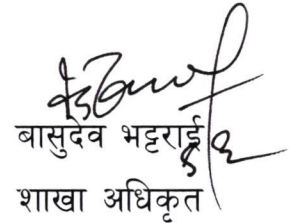 बासुदेव भट्टराई
शाखा अधिकृत